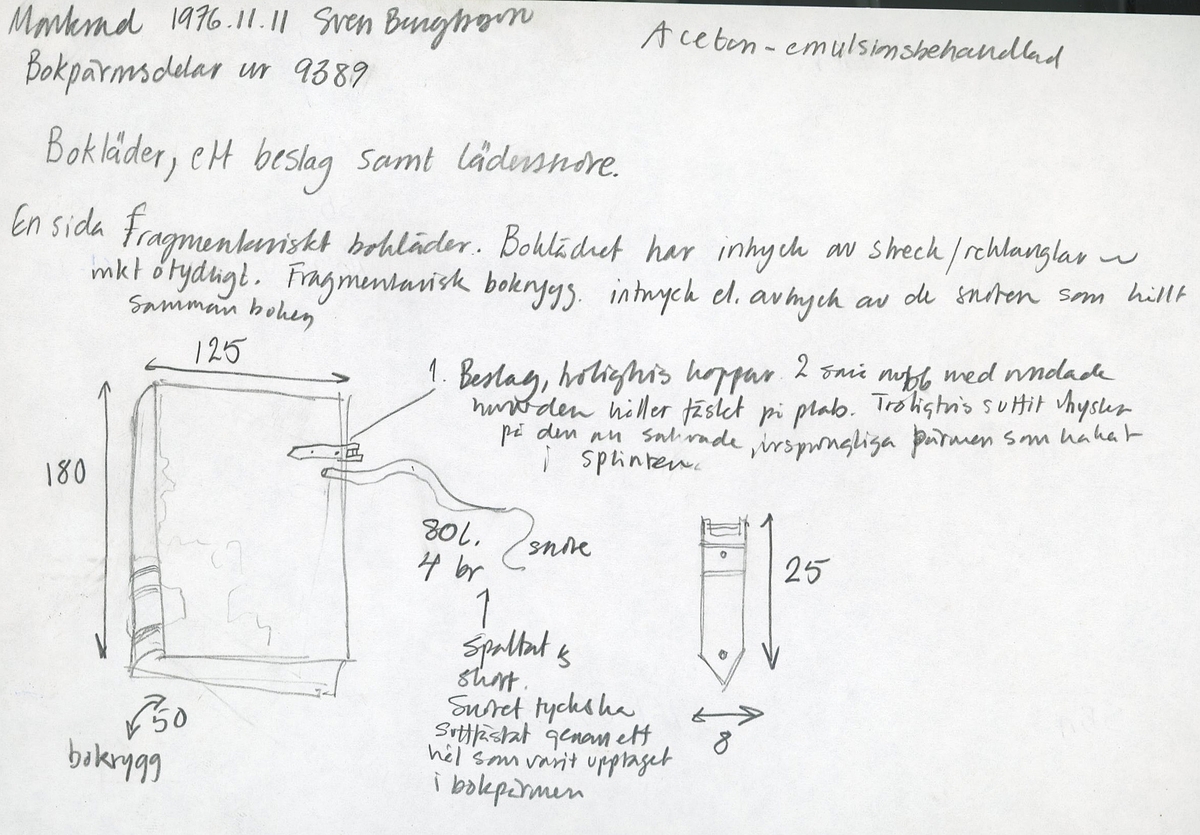 Markrad 1976.11.11 Sven Bengtsson
Aceton-emulsionsbehandlad
Bokpärmsdelar ur 9389
Bokläder, ett beslag samt lädersnöre.
En sida fragmentariskt bokläder. Boklädret har intryck av streck/rektanglar
mkt otydligt. Fragmentarisk bokrygg. intryck el. avtryck av de snören som hållt
samman boken
125
180
1. Beslag, troligtvis koppar. 2 små nubb med rundade
huvuden håller fästet på plats. Troligtvis suttit hyska
på den nu saknade, ursprungliga pärmen som hakat
i splinten.
80 l.
4 br
snöre
25
Spaltat &
skört.
Snöret tycks ha
suttit fäst genom ett
hål som varit upptaget
i bokpärmen
50
bokrygg
8